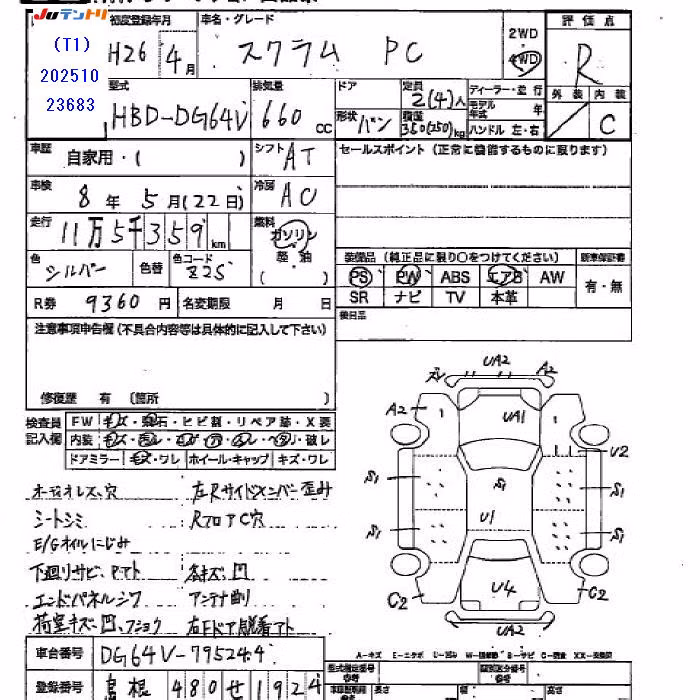 Juテントリ
(T1)
202510
23683
初度登録年月
H26 4月
車名・グレード
スクラム PC
2WD
4WD
評価点
R
外装 内装
C
型式
HBD-DG64V
排気量
660 cc
ドア
形状
バン
定員
2(4)人
積量
350(250)kg
ディーラー・並行
モデル年式 年
ハンドル 左・右
車歴
自家用・( )
シフト
AT
セールスポイント（正常に機能するものに限ります）
車検
8年 5月(22日)
冷房
AC
走行
11万5千359km
燃料
ガソリン
軽油
( )
色
シルバー
色替
色コード
Z2S
装備品（純正品に限り○をつけてください）
新車保証書
PS PW ABS エアB AW
有・無
SR ナビ TV 本革
後日品
R券 9360円
名変期限 月 日
注意事項申告欄（不具合内容等は具体的に記入して下さい）
修復歴 有（箇所 ）
検査員
記入欄
FW キズ・飛石・ヒビ割・リペア跡・X要
内装
ドアミラー キズ・ワレ ホイール・キャップ キズ・ワレ
UA2
ズレ
A2
A2
UA1
U2
S1
S1
S1
U1
S1
S1
U4
C2
C2
UA2
オーディオレス、穴
左Rサイドメンバー歪み
シートシミ
RフロアC穴
E/Gオイルにじみ
下廻りサビ、P.アト
各キズ、凹
エンドパネルシワ
アンテナ曲り
荷室キズ・凹、フショク
右Fドア脱着アト
A-キズ E-エクボ U-凹み W-補修跡 S-サビ C-腐食 XX-交換済
車台番号
DG64V-795244
型式指定番号
類別区分番号
登録番号
島根 480 せ 1924
長さ
幅
高さ